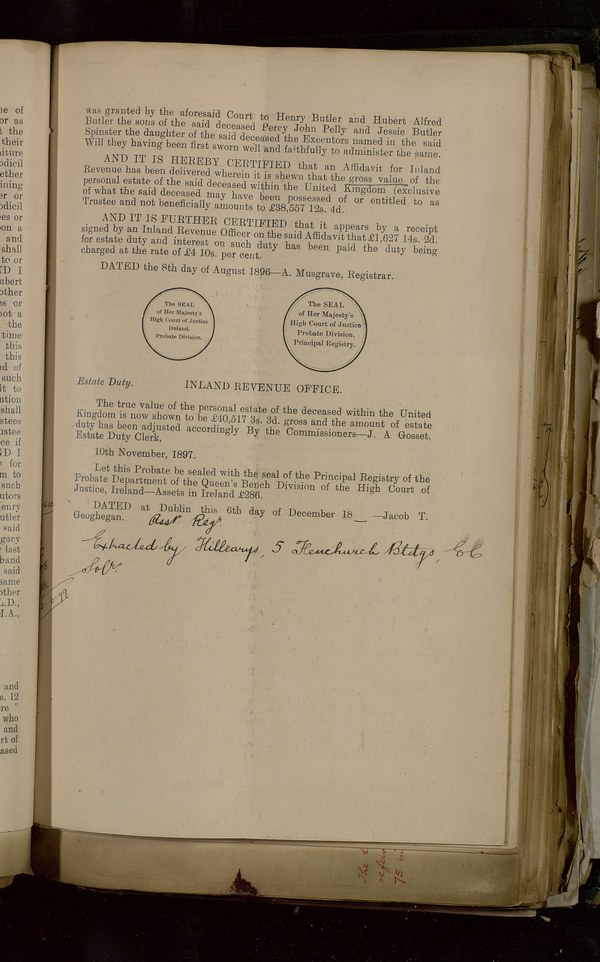 was granted by the aforesaid Court to Henry Butler and Hubert Alfred
Butler the sons of the said deceased Percy John Pelly and Jessie Butler
Spinster the daughter of the said deceased the Executors named in the said
Will they having been first sworn well and faithfully to administer the same.
AND IT IS HEREBY CERTIFIED that an Affidavit for Inland
Revenue has been delivered wherein it is shewn that the gross value of the
personal estate of the said deceased within the United Kingdom (exclusive
of what the said deceased may have been possessed of or entitled to as
Trustee and not beneficially amounts to £38,557 12s. 4d.
AND IT IS FURTHER CERTIFIED that it appears by a receipt
signed by an Inland Revenue Officer on the said Affidavit that £1,627 14s. 2d.
for estate duty and interest on such duty has been paid the duty being
charged at the rate of £4 10s. per cent.
DATED the 8th day of August 1896—A. Musgrave, Registrar.
The SEAL
of Her Majesty's
High Court of Justice
Ireland.
Probate Division.
The SEAL
of Her Majesty's
High Court of Justice
Probate Division.
Principal Registry.
Estate Duty.
INLAND REVENUE OFFICE.
The true value of the personal estate of the deceased within the United
Kingdom is now shown to be £40,517 3s. 3d. gross and the amount of estate
duty has been adjusted accordingly By the Commissioners—J. A Gosset,
Estate Duty Clerk,
10th November, 1897.
Let this Probate be sealed with the seal of the Principal Registry of the
Probate Department of the Queen's Bench Division of the High Court of
Justice, Ireland—Assets in Ireland £286.
DATED at Dublin this 6th day of December 18__ —Jacob T.
Geoghegan. Asst Regr
Extracted by Hillearys, 5 Fenchurch Bldgs, EC
Solrs